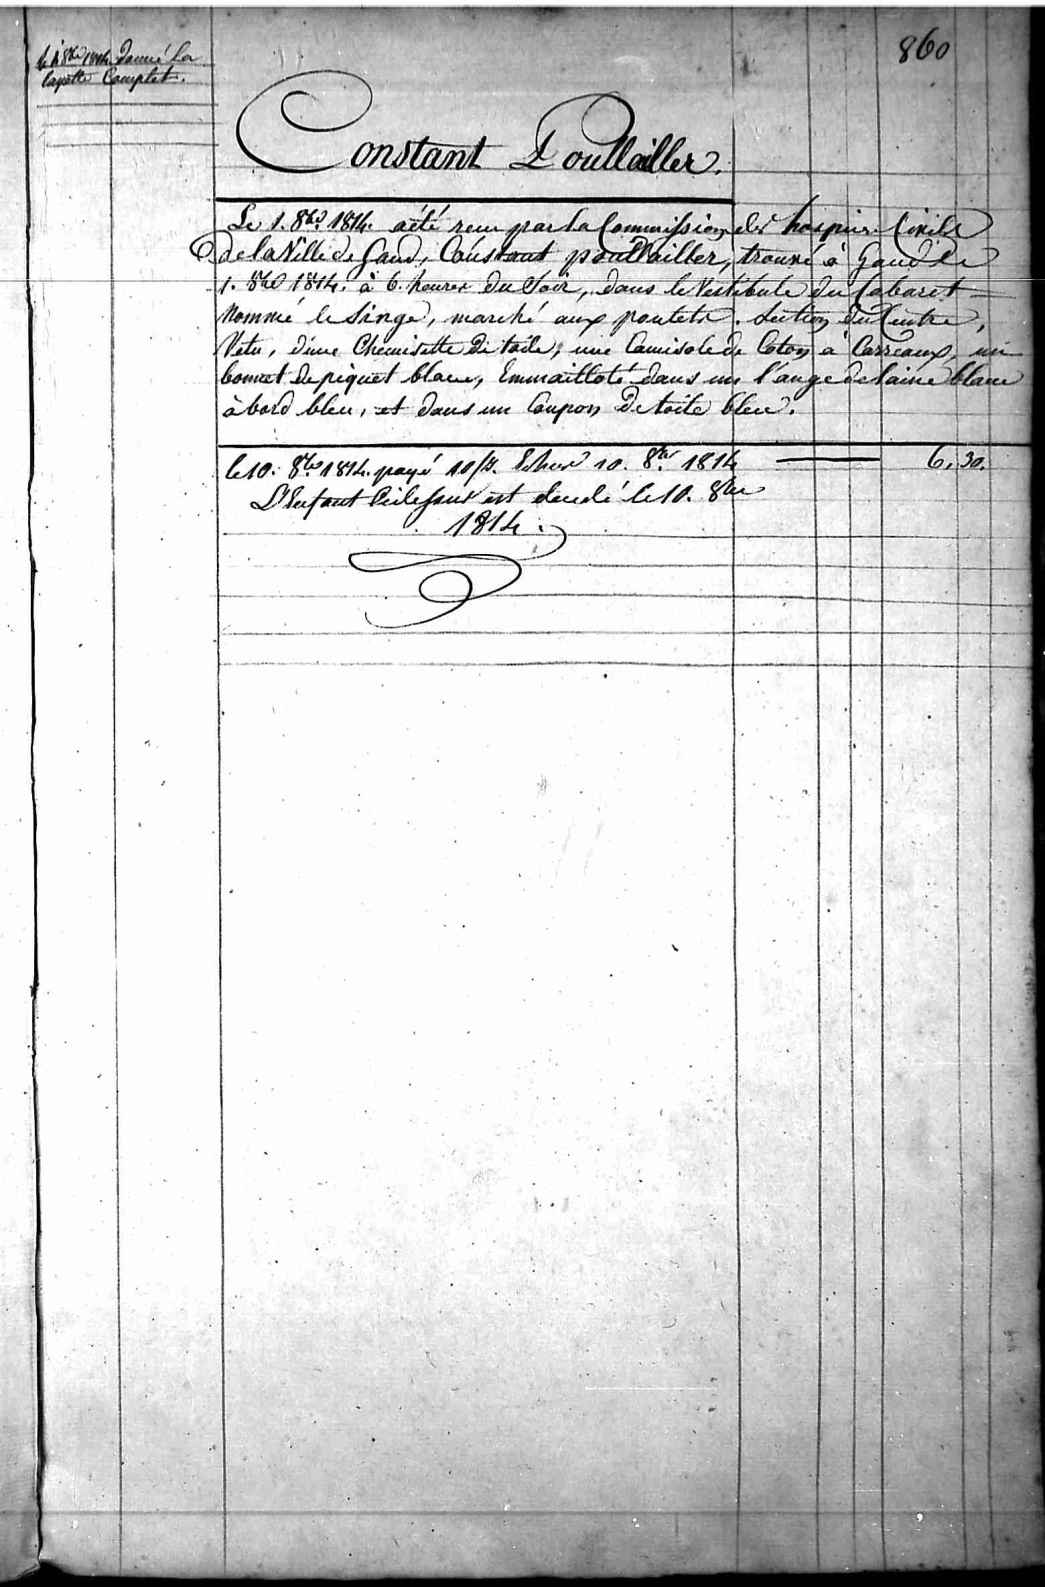 860
le 4 8bre 1814 donné la
layette Complet.
Constant Poullailler.
Le 1. 8bre 1814. a été recu par la Commission des hospices Civils
de la Ville de Gand, Constant poullailler, trouvé à Gand le
1. 8bre 1814. à 6. heures du Soir, dans le Vestibule du Cabaret
Nommé le Singe, marché aux poulets. Section du Centre,
Vetu, d'une Chemisette de toile, une Camisole de Coton à Carreaux, un
bonnet de piquet blanc, Emmailloté dans un l'ange de laine blanc
à bord bleu, et dans un Coupon de toile bleu.
le 10. 8bre 1814. payé 10/j. Echus 10. 8bre 1814 6,30.
L'Enfant Ci dessus est decedé le 10. 8bre
1814.